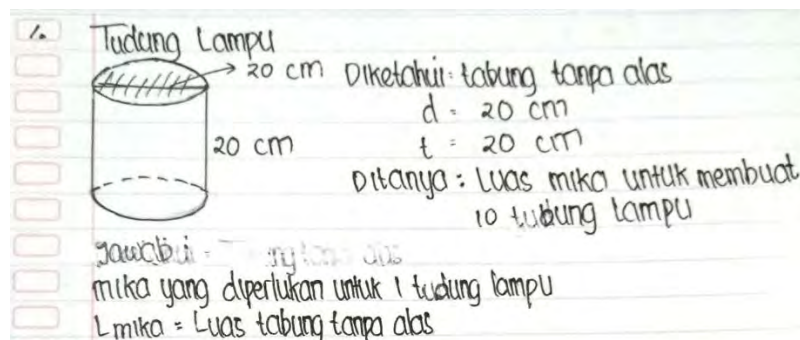 1. Tudung Lampu
20 cm Diketahui: tabung tanpa alas
d = 20 cm
20 cm t = 20 cm
Ditanya: Luas mika untuk membuat
10 tudung lampu
Jawab:
mika yang diperlukan untuk 1 tudung lampu
L mika = Luas tabung tanpa alas